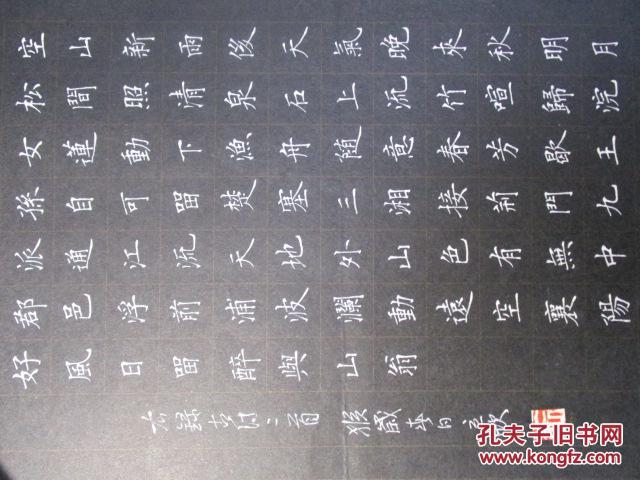 空山新雨後天氣晚來秋明月
松間照清泉石上流竹喧歸浣
女蓮動下漁舟随意春芳歇王
孫自可留楚塞三湘接荊門九
派通江流天地外山色有無中
郡邑浮前浦波瀾動遠空襄陽
好風日留醉與山翁
右錄唐詩二首 猴歲春日
孔夫子旧书网
www.kongfz.com